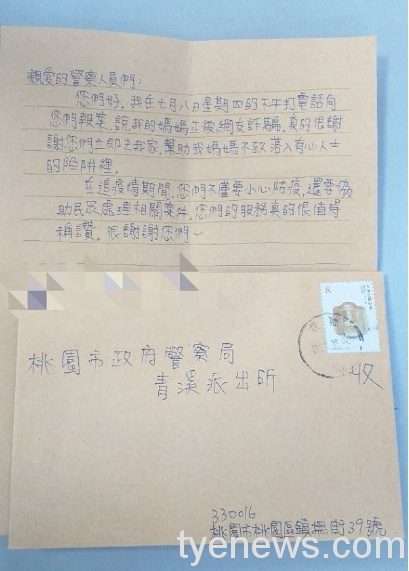 親愛的警察人員們：
您們好，我在七月八日星期四的下午打電話向
您們報案，說我的媽媽正被網友詐騙，真的很謝
謝您們立即去我家，幫助我媽媽不致落入有心人士
的陷阱裡。
在這疫情期間，您們不僅要小心防疫，還要協
助民眾處理相關案件，您們的服務真的很值得
稱讚。很謝謝您們~
8
桃園市政府警察局
青溪派出所
收
330016
桃園市桃園區鎮撫街39號
tyenews.com